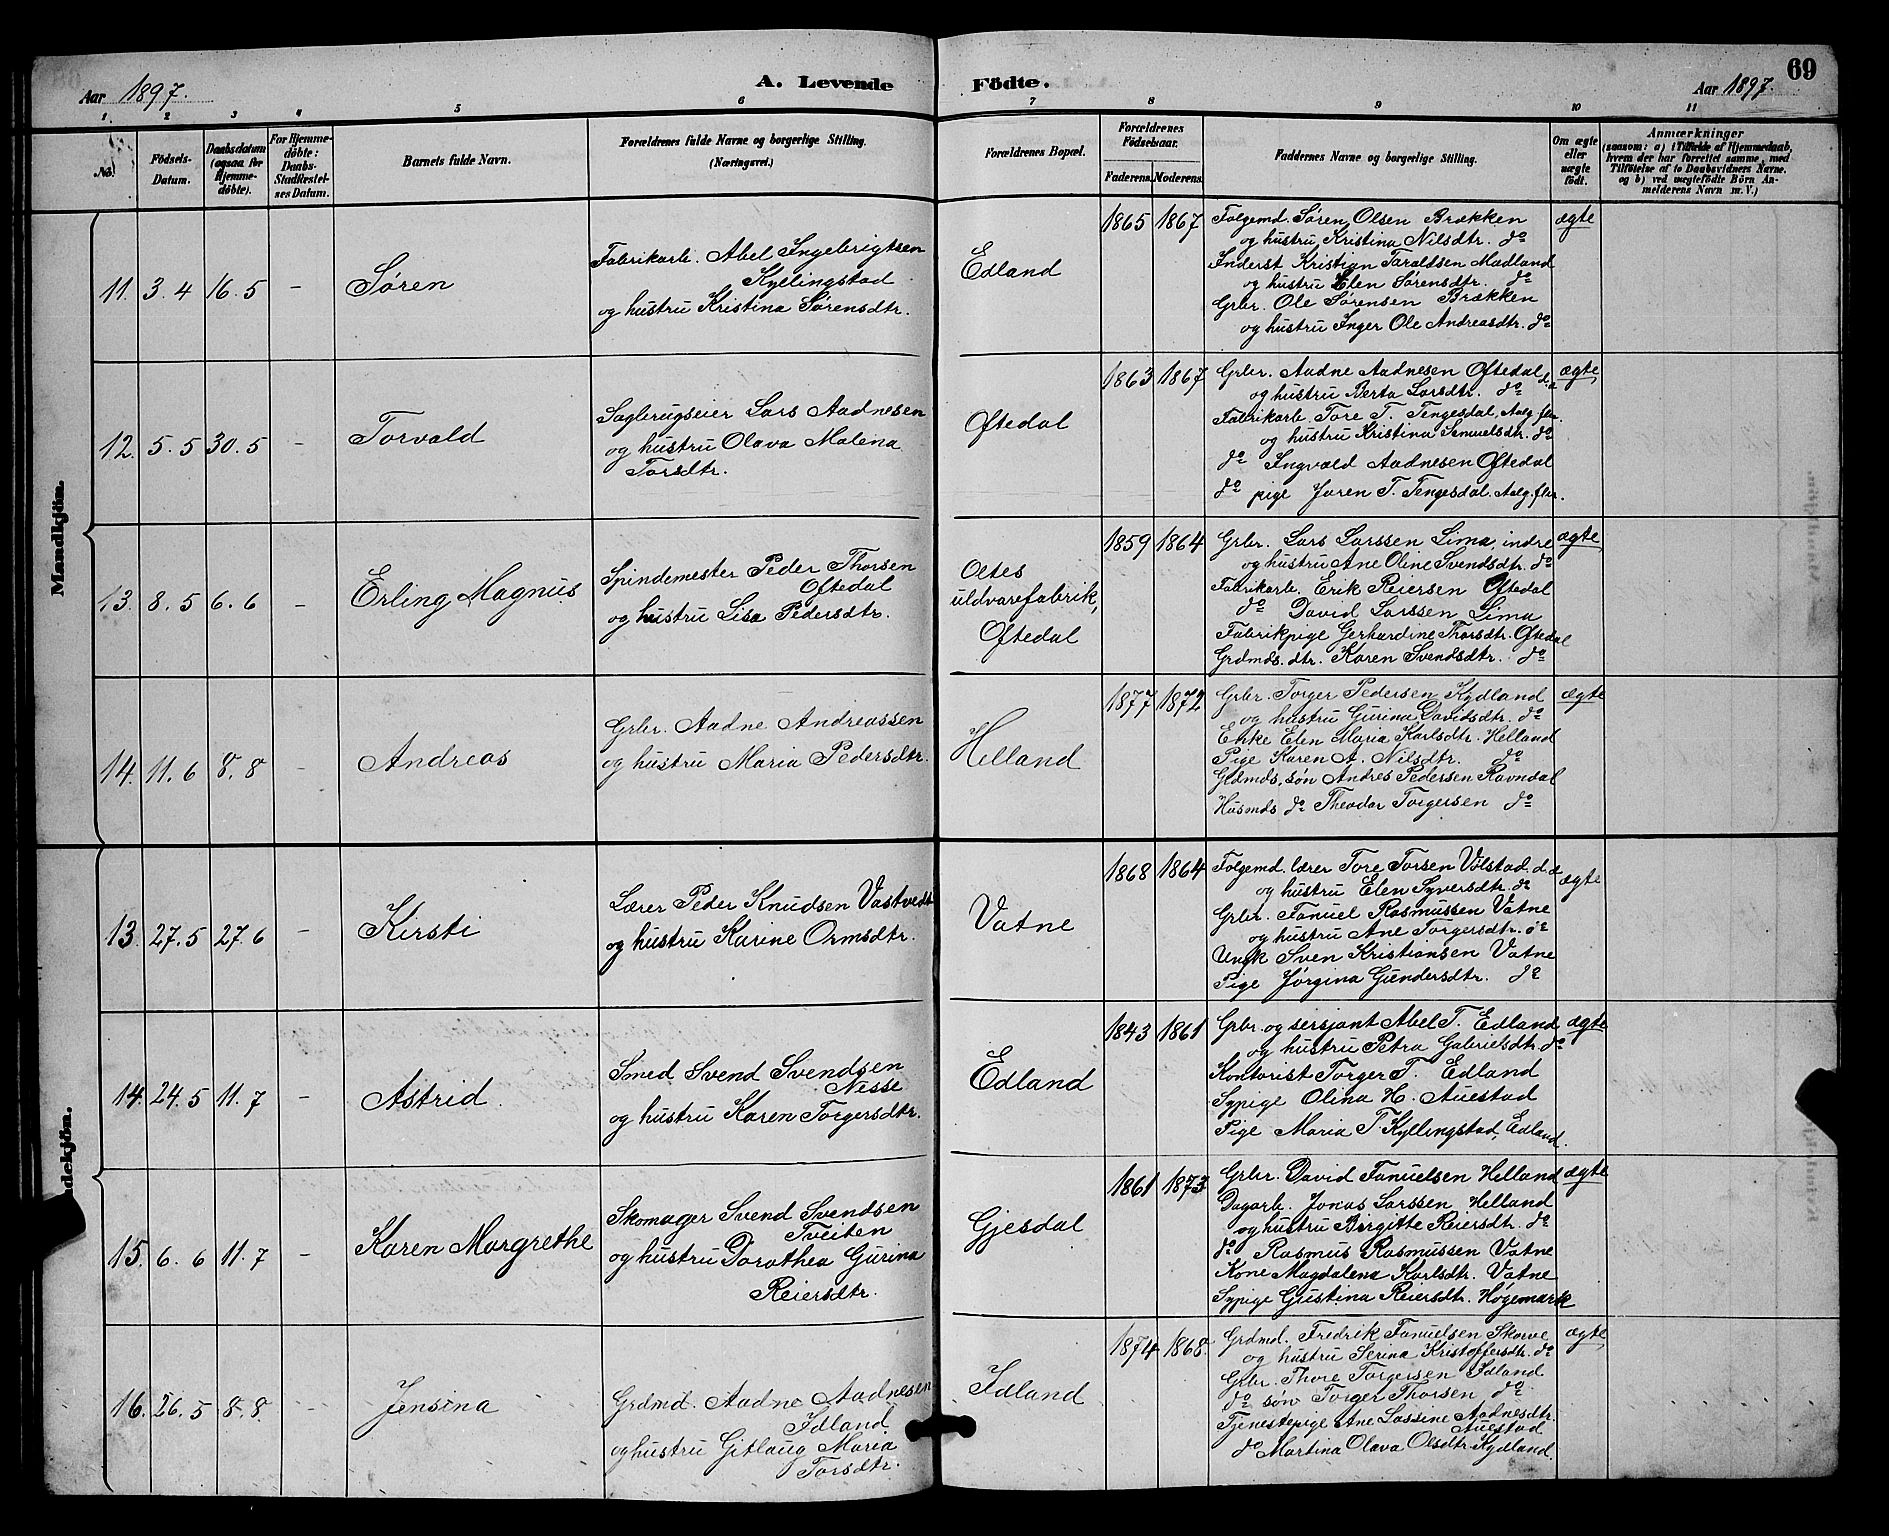 69
Aar 1897. A. Levende Fødte. Aar 1897.
1 2 3 4 5 6 7 8 9 10 11
No.
Födsels-
Datum.
Daabsdatum
(ogsaa for
Hjemme-
döbte).
For Hjemme-
döbte:
Daabs-
Stadfæstel-
ses Datum.
Barnets fulde Navn.
Forældrenes fulde Navne og borgerlige Stilling.
(Næringsvei.)
Forældrenes Bopæl.
Forældrenes
Födselsaar.
Faderens. Moderens.
Faddernes Navne og borgerlige Stilling.
Om ægte
eller
uægte
födt.
Anmærkninger
(saasom: a) i Tilfælde af Hjemmedaab,
hvem der har forrettet samme, med
Tilföielse af to Daabsvidners Navne.
og b) ved uægtefödte Börn An-
melderens Navn m. V.)
Mandkjön.
11. 3.4 16.5 -
Søren
Fabrikarb. Abel Ingebrigtsen
Kyllingstad
og hustru Kristina Sørensdtr.
Edland
1865 1867
Folgemd. Søren Olsen Brækken
og hustru Kristina Nilsdtr. do
Inderst Kristian Taraldsen Madland
og hustru Elen Sørensdtr. do
Grbr. Ole Sørensen Brækken
og hustru Inger Ole Andreasdtr. do
ægte
12. 5.5 30.5 -
Torvald
Sagbrugseier Lars Aadnesen
og hustru Olava Malena
Torsdtr.
Oftedal
1863 1867
Grbr. Aadne Aadnesen Oftedal
og hustru Berta Larsdtr. do
Fabrikarb Tore T. Tengesdal, Aalg.fbr.
og hustru Kristina Samuelsdtr. do
do Ingvald Aadnesen Oftedal
do pige Joren T. Tengesdal, Aalg.fbr.
ægte
13. 8.5 6.6 -
Erling Magnus
Spindemester Peder Thorsen
Oftedal
og hustru Lisa Pedersdtr.
Oltes
uldvarefabrik,
Oftedal
1859 1864
Grbr. Lars Larssen Lima, indre
og hustru Ane Oline Svendsdtr. do
Fabrikarb. Erik Reiersen Oftedal
do David Larssen Lima
Fabrikpige Gerhardine Thorsdtr. Oftedal
Grdmds. dtr. Karen Svendsdtr. do
ægte
14. 11.6 8.8 -
Andreas
Grbr. Aadne Andreassen
og hustru Maria Pedersdtr.
Helland
1877 1872
Grbr. Torger Pedersen Kydland
og hustru Gurina Davidsdtr. do
Enke Elen Maria Karlsdtr. Helland
Pige Karen A. Nilsdtr. do
Grdmds. søn Andres Pedersen Ravndal
Husmds do Theodor Torgersen do
ægte
13. 27.5 27.6 -
Kirsti
Lærer Peder Knudsen Vastvedt
og hustru Karine Ormsdtr.
Vatne
1868 1864
Folgemd. lærer Tore Torsen Vølstad
og hustru Elen Syversdtr. do
Grbr. Fanuel Rasmussen Vatne
og hustru Ane Torgersdtr. do
Ungk Sven Kristiansen Vatne
Pige Jørgina Gundersdtr. do
ægte
14. 24.5 11.7 -
Astrid
Smed Svend Svendsen
Nesse
og hustru Karen Torgersdtr.
Edland
1843 1861
Grbr. og sersjant Abel T. Edland
og hustru Petra Gabrielsdtr. do
Kontorist Torger T. Edland
Sypige Olina H. Auestad
Pige Maria T Kyllingstad, Edland.
ægte
15. 6.6 11.7 -
Karen Margrethe
Skomager Svend Svendsen
Tveiten
og hustru Dorothea Gurina
Reiersdtr.
Gjesdal
1861 1873
Grbr. David Fanuelsen Helland
Dagarb. Jonas Larssen Helland
og hustru Birgitte Reiersdtr. do
do Rasmus Rasmussen Vatne
Kone Magdalena Karlsdtr. Vatne
Sypige Gustina Reiersdtr. Høgemark
ægte
16. 26.5 8.8 -
Jensina
Grdmd. Aadne Aadnesen
Idland
og hustru Gitlaug Maria
Torsdtr.
Idland
1874 1868.
Grdmd. Fredrik Fanuelsen Skorve
og hustru Serina Kristoffersdtr. do
Grbr. Thore Torgersen Idland
do søn Torger Thorsen do
Tjenestepige Ane Lassine Aadnesdtr.
Auestad
do Martina Olava Olsdtr. Kydland.
ægte